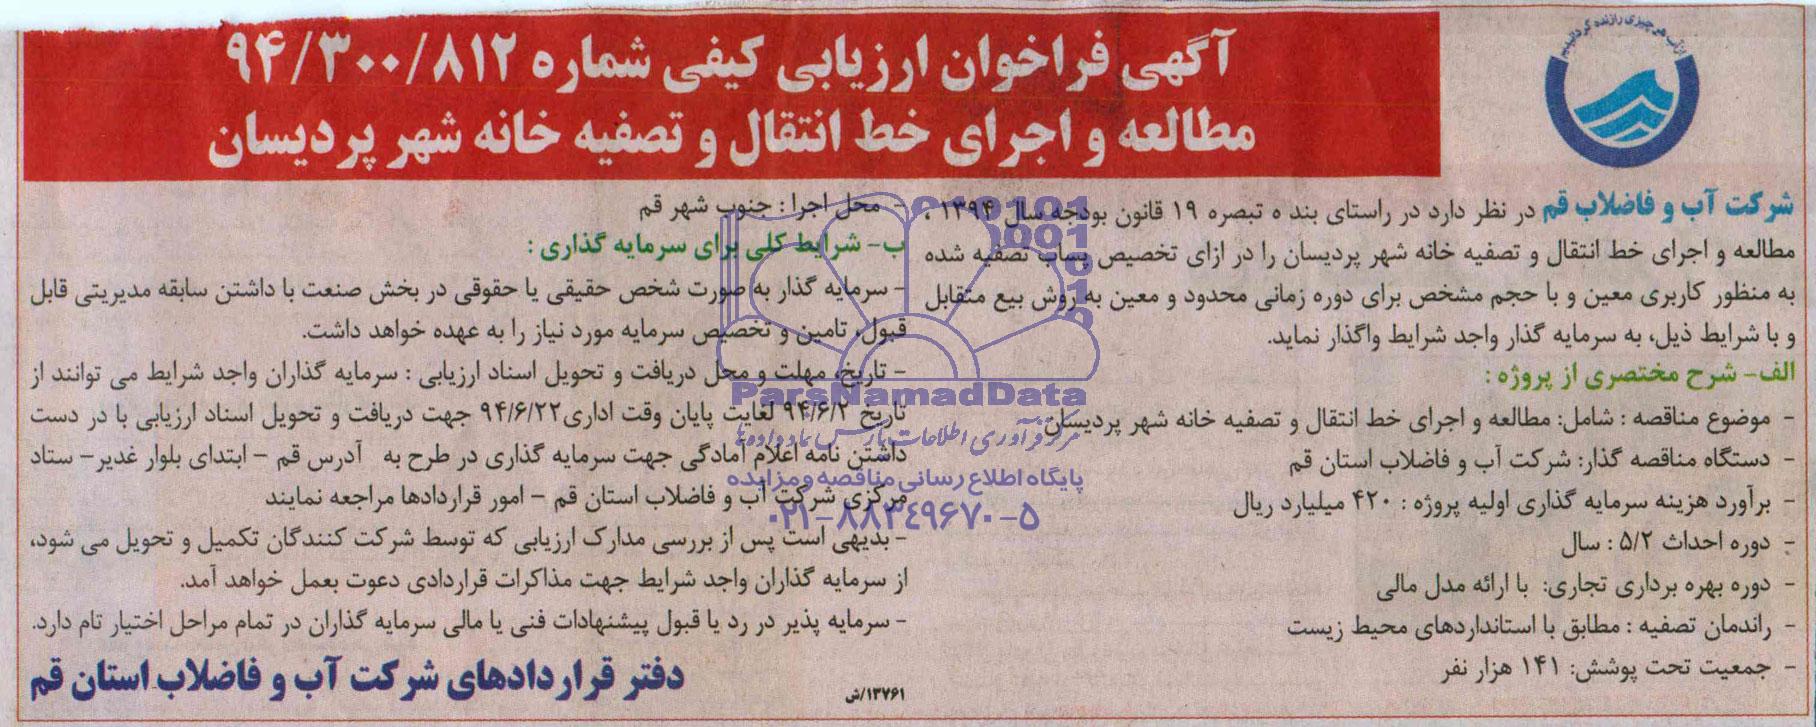 از آب هر چیزی را زنده گردانیدیم
آگهی فراخوان ارزیابی کیفی شماره ۹۴/۳۰۰/۸۱۲
مطالعه و اجرای خط انتقال و تصفیه خانه شهر پردیسان
شرکت آب و فاضلاب قم در نظر دارد در راستای بند ه تبصره ۱۹ قانون بودجه سال ۱۳۹۴ ،
مطالعه و اجرای خط انتقال و تصفیه خانه شهر پردیسان را در ازای تخصیص پساب تصفیه شده
به منظور کاربری معین و با حجم مشخص برای دوره زمانی محدود و معین به روش بیع متقابل
و با شرایط ذیل، به سرمایه گذار واجد شرایط واگذار نماید.
الف- شرح مختصری از پروژه :
- موضوع مناقصه : شامل: مطالعه و اجرای خط انتقال و تصفیه خانه شهر پردیسان
- دستگاه مناقصه گذار: شرکت آب و فاضلاب استان قم
- برآورد هزینه سرمایه گذاری اولیه پروژه : ۴۲۰ میلیارد ریال
- دوره احداث ۵/۲ : سال
- دوره بهره برداری تجاری: با ارائه مدل مالی
- راندمان تصفیه : مطابق با استانداردهای محیط زیست
- جمعیت تحت پوشش: ۱۴۱ هزار نفر
- محل اجرا : جنوب شهر قم
ب- شرایط کلی برای سرمایه گذاری :
- سرمایه گذار به صورت شخص حقیقی یا حقوقی در بخش صنعت با داشتن سابقه مدیریتی قابل
قبول، تامین و تخصیص سرمایه مورد نیاز را به عهده خواهد داشت.
- تاریخ، مهلت و محل دریافت و تحویل اسناد ارزیابی : سرمایه گذاران واجد شرایط می توانند از
تاریخ ۹۴/۶/۲ لغایت پایان وقت اداری ۹۴/۶/۲۲ جهت دریافت و تحویل اسناد ارزیابی با در دست
داشتن نامه اعلام آمادگی جهت سرمایه گذاری در طرح به آدرس قم - ابتدای بلوار غدیر- ستاد
مرکزی شرکت آب و فاضلاب استان قم - امور قراردادها مراجعه نمایند
- بدیهی است پس از بررسی مدارک ارزیابی که توسط شرکت کنندگان تکمیل و تحویل می شود،
از سرمایه گذاران واجد شرایط جهت مذاکرات قراردادی دعوت بعمل خواهد آمد.
- سرمایه پذیر در رد یا قبول پیشنهادات فنی یا مالی سرمایه گذاران در تمام مراحل اختیار تام دارد.
۱۳۷۶۱/ش
دفتر قراردادهای شرکت آب و فاضلاب استان قم
ParsNamadData
مرکز فرآوری اطلاعات پارس نماد داده ها
پایگاه اطلاع رسانی مناقصه و مزایده
۰۲۱-۸۸۳۴۹۶۷۰-۵